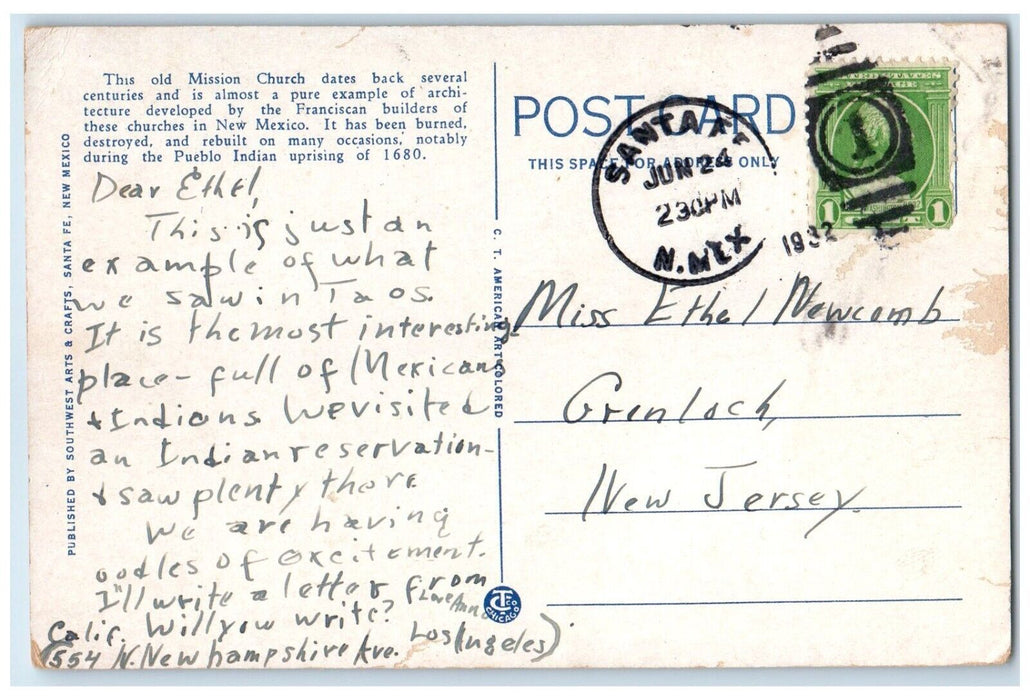 This old Mission Church dates back several
centuries and is almost a pure example of archi-
tecture developed by the Franciscan builders of
these churches in New Mexico. It has been burned,
destroyed, and rebuilt on many occasions, notably
during the Pueblo Indian uprising of 1680.
Dear Ethel,
This is just an
example of what
we saw in Taos.
It is the most interesting
place - full of Mexicans
+ Indians We visited
an Indian reservation -
+ saw plenty there
We are having
oodles of excitement.
I'll write a letter from
Calif. Will you write?
Love Ann
(554 N. New hampshire Ave. Los Angeles)
PUBLISHED BY SOUTHWEST ARTS & CRAFTS, SANTA FE, NEW MEXICO
C. T. AMERICAN ART COLORED
CT CO
CHICAGO
POST CARD
THIS SPACE FOR ADDRESS ONLY
SANTA FE
JUN 24
230PM
N. MEX
1932
1
1 1
Miss Ethel Newcomb
Grenloch,
New Jersey.